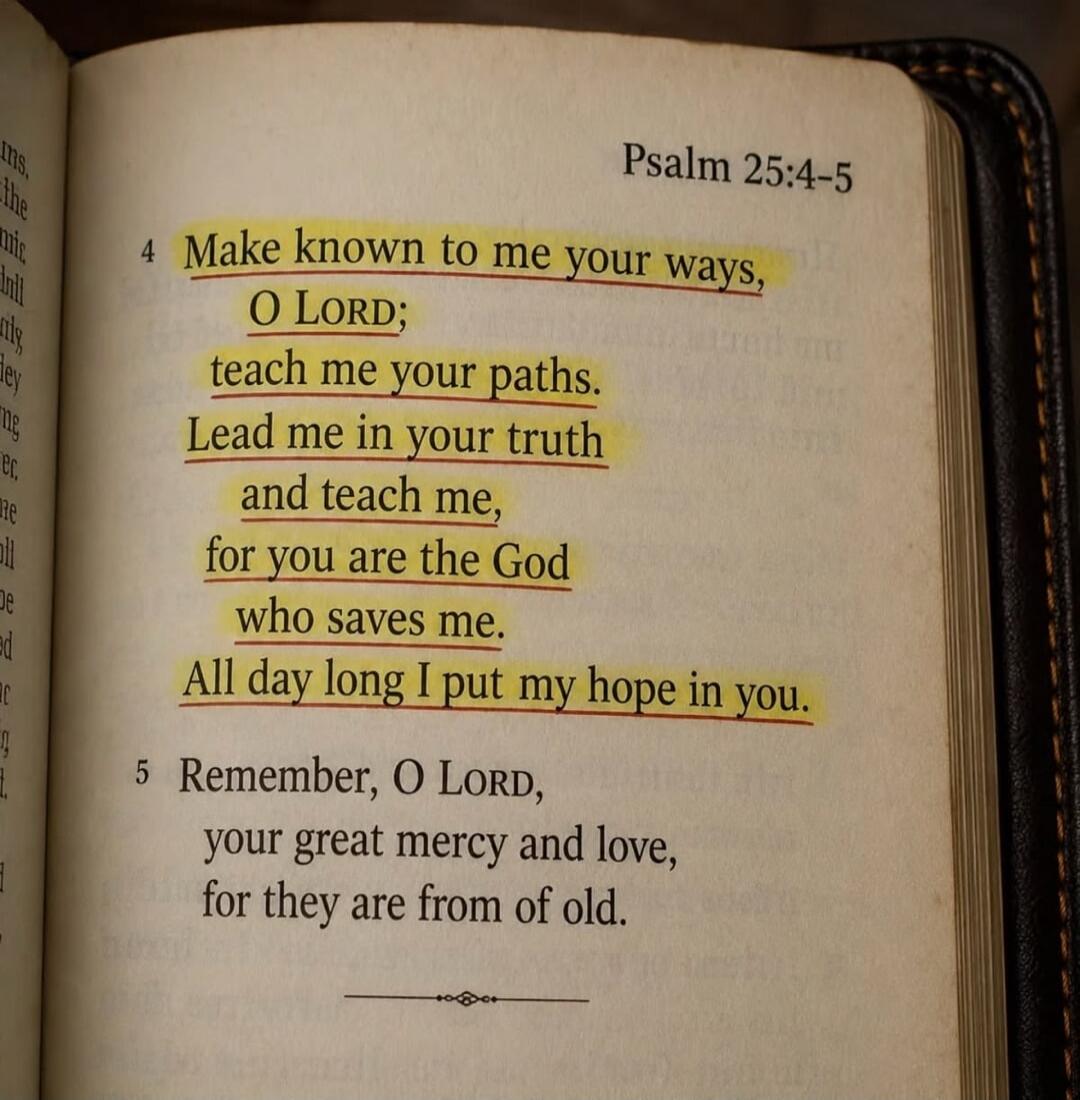 Psalm 25:4–5
4 Make known to me your ways,
O LORD;
teach me your paths.
Lead me in your truth
and teach me,
for you are the God
who saves me.
All day long I put my hope in you.
5 Remember, O LORD,
your great mercy and love,
for they are from of old.